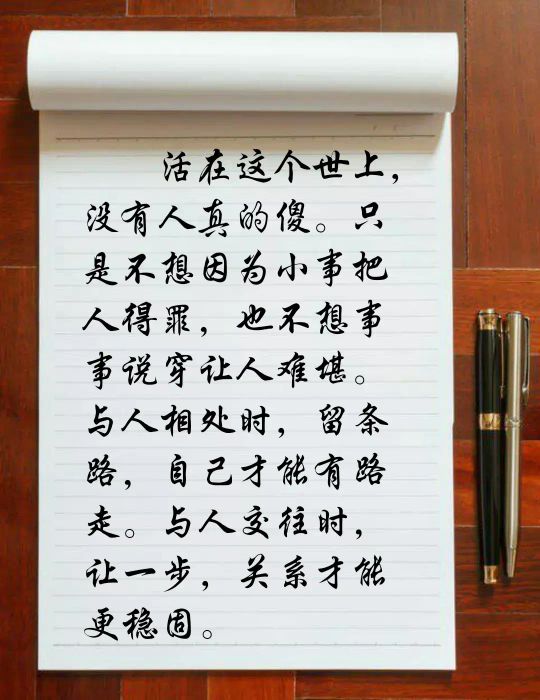 活在这个世上，
没有人真的傻。只
是不想因为小事把
人得罪，也不想事
事说穿让人难堪。
与人相处时，留条
路，自己才能有路
走。与人交往时，
让一步，关系才能
更稳固。